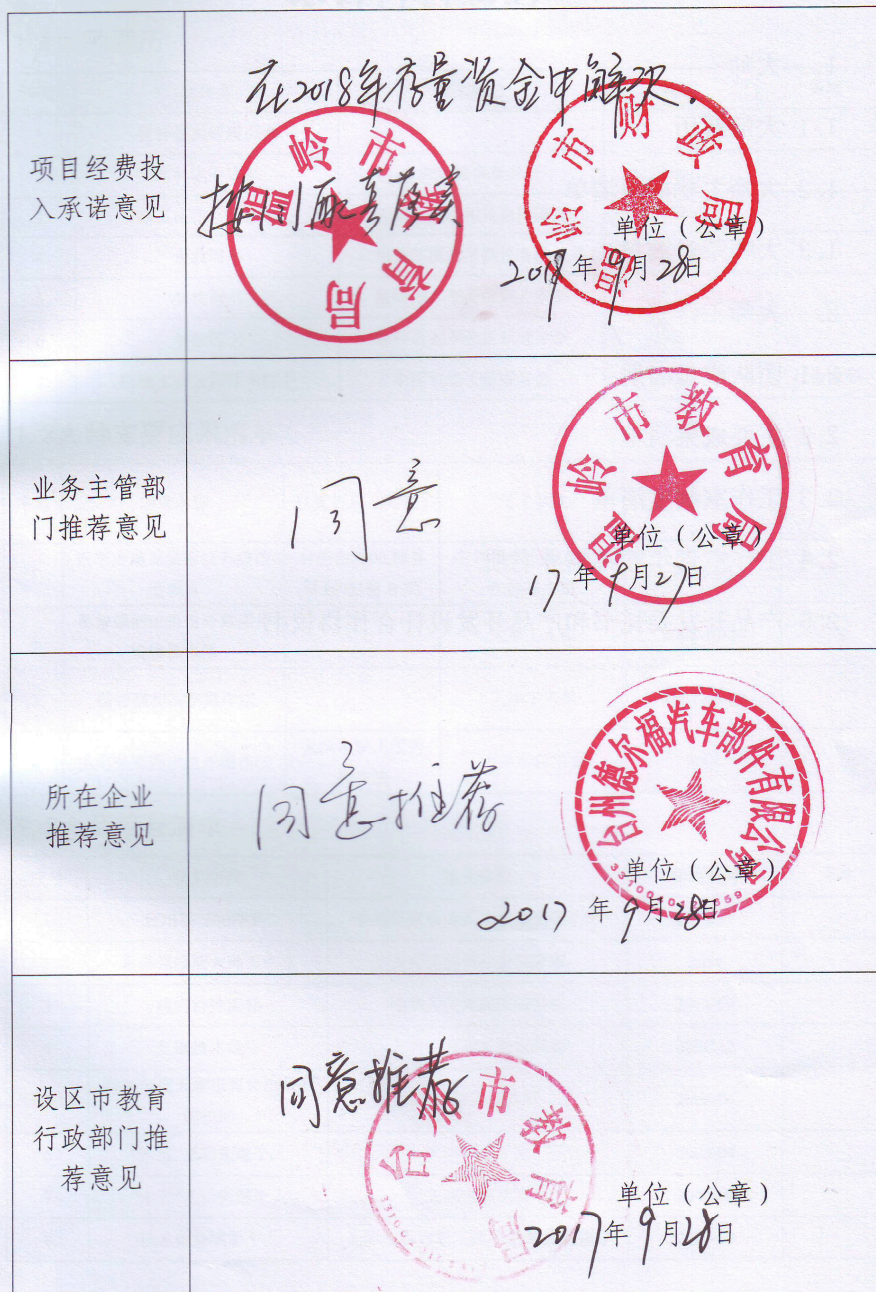 项目经费投
入承诺意见
在2018年存量资金中解决.
按比例配套落实
温岭市教育局
温岭市财政局
单位（公章）
2017年9月28日
业务主管部
门推荐意见
同意
温岭市教育局
单位（公章）
17年9月27日
所在企业
推荐意见
同意推荐
台州德尔福汽车部件有限公司
单位（公章）
2017年9月28日
设区市教育
行政部门推
荐意见
同意推荐
台州市教育局
单位（公章）
2017年9月28日